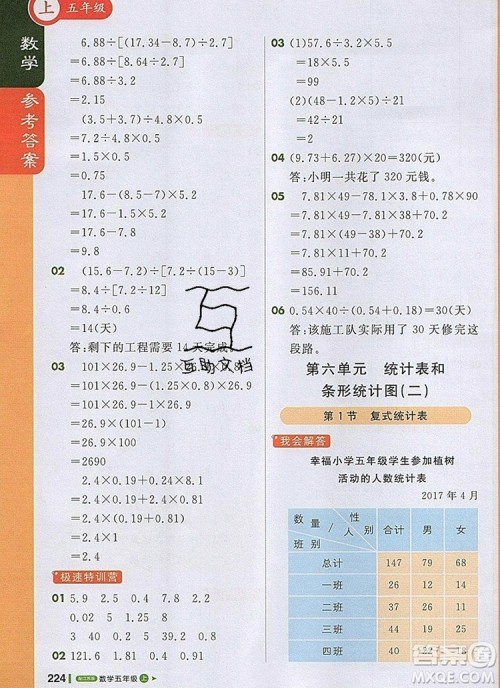 上 五年级
数学
参考答案
6.88÷[(17.34-8.7)÷2.7]
=6.88÷[8.64÷2.7]
=6.88÷3.2
=2.15
(3.5+3.7)÷4.8×0.5
=7.2÷4.8×0.5
=1.5×0.5
=0.75
17.6-(8.5-7.2)×6
=17.6-1.3×6
=17.6-7.8
=9.8
02 (15.6-7.2)÷[7.2÷(15-3)]
=8.4÷[7.2÷12]
=8.4÷0.6
=14(天)
答:剩下的工程需要14天完成。
03 101×26.9-1.25×0.8×26.9
=101×26.9-1×26.9
=(101-1)×26.9
=100×26.9
=2690
2.4×0.19+0.24×8.1
=2.4×0.19+2.4×0.81
=2.4×(0.19+0.81)
=2.4×1
=2.4
极速特训营
01 5.9 2.5 0.4 7.2 2.7
0.02 5 1.2 0.8
3 40 0.2 39 0.2
02 121.6 0.75 164 0.9
224 数学五年级 上
03 (1)57.6÷3.2×5.5
=18×5.5
=99
(2)(48-1.2×5)÷2
=42÷2
=21
04 (9.73+6.27)×20=320(元)
答:小明一共花了320元钱。
05 7.81×49-78.1×3.8+0.78×90
=7.81×49-7.81×38+70.2
=7.81×(49-38)+70.2
=7.81×11+70.2
=85.91+70.2
=156.11
06 0.54×40÷(0.54+0.18)=30(天)
答:该施工队实际用了30天修完这
段路。
第六单元 统计表和
条形统计图(二)
第1节 复式统计表
我会解答
幸福小学五年级学生参加植树
活动的人数统计表
2017年4月
数量 性别 人 班别 合计 男 女
总计 147 79 68
一班 26 12 14
二班 36 20 16
三班 45 25 20
四班 40 22 18
互助文档
答案圈
MXQE.COM